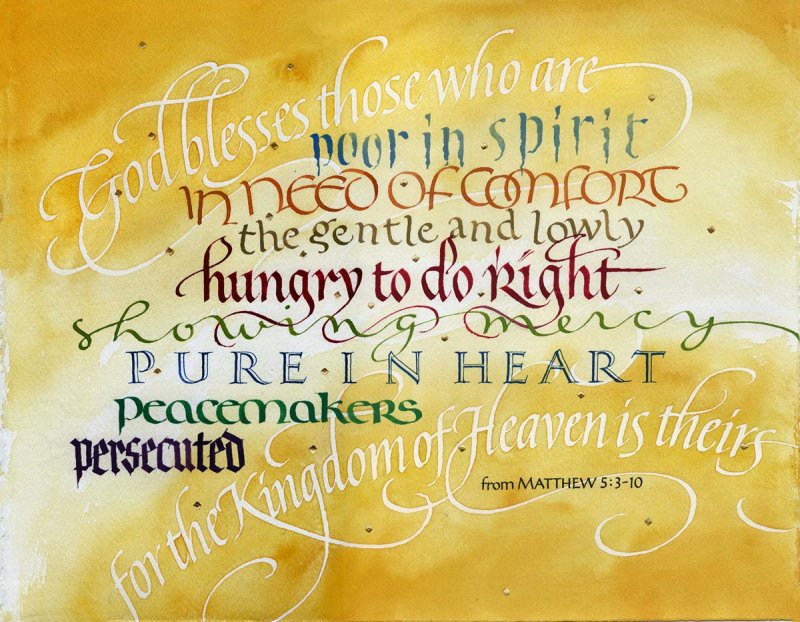 God blesses those who are
poor in spirit
IN NEED OF COMFORT
the gentle and lowly
hungry to do Right
showing mercy
PURE IN HEART
peacemakers
persecuted
for the Kingdom of Heaven is theirs
from MATTHEW 5:3-10